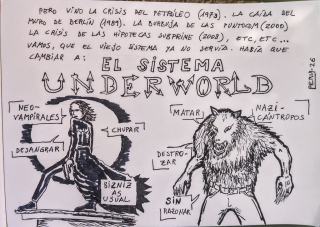 PERO VINO LA CRISIS DEL PETRÓLEO (1973), LA CAÍDA DEL
MURO DE BERLÍN (1989), LA BURBUJA DE LAS PUNTOCOM (2000)
LA CRISIS DE LAS HIPOTECAS SUBPRIME (2008), ETC, ETC...
VAMOS, QUE EL VIEJO SISTEMA YA NO SERVÍA. HABÍA QUE
CAMBIAR A:
EL SISTEMA
UNDERWORLD
NEO-
VAMPIRALES
CHUPAR
DESANGRAR
BIZNIZ
AS
USUAL
MATAR
NAZI-
CÁNTROPOS
DESTRO-
ZAR
SIN
RAZONAR